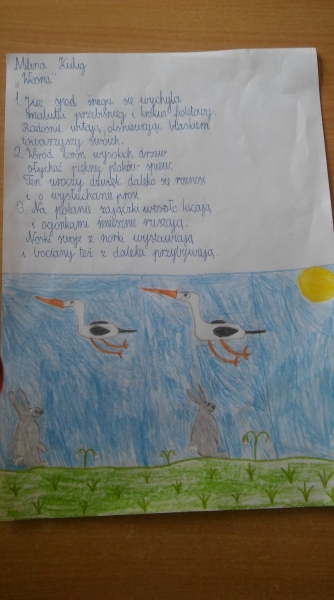 Milena Kulig
„Wiosna"
1. Już spod śniegu się wychyla
malutki przebiśnieg i krokus fioletowy.
Radośnie witają, olśniewając blaskiem
towarzyszy swoich.
2. Wśród koron wysokich drzew
słychać piękny ptaków śpiew.
Ten uroczy dźwięk daleko się roznosi
i o wysłuchanie prosi.
3. Na polanie zajączki wesoło kicają
i ogonkami śmiesznie ruszają.
Noski swoje z norki wystawiają
i bociany też z daleka przybywają.